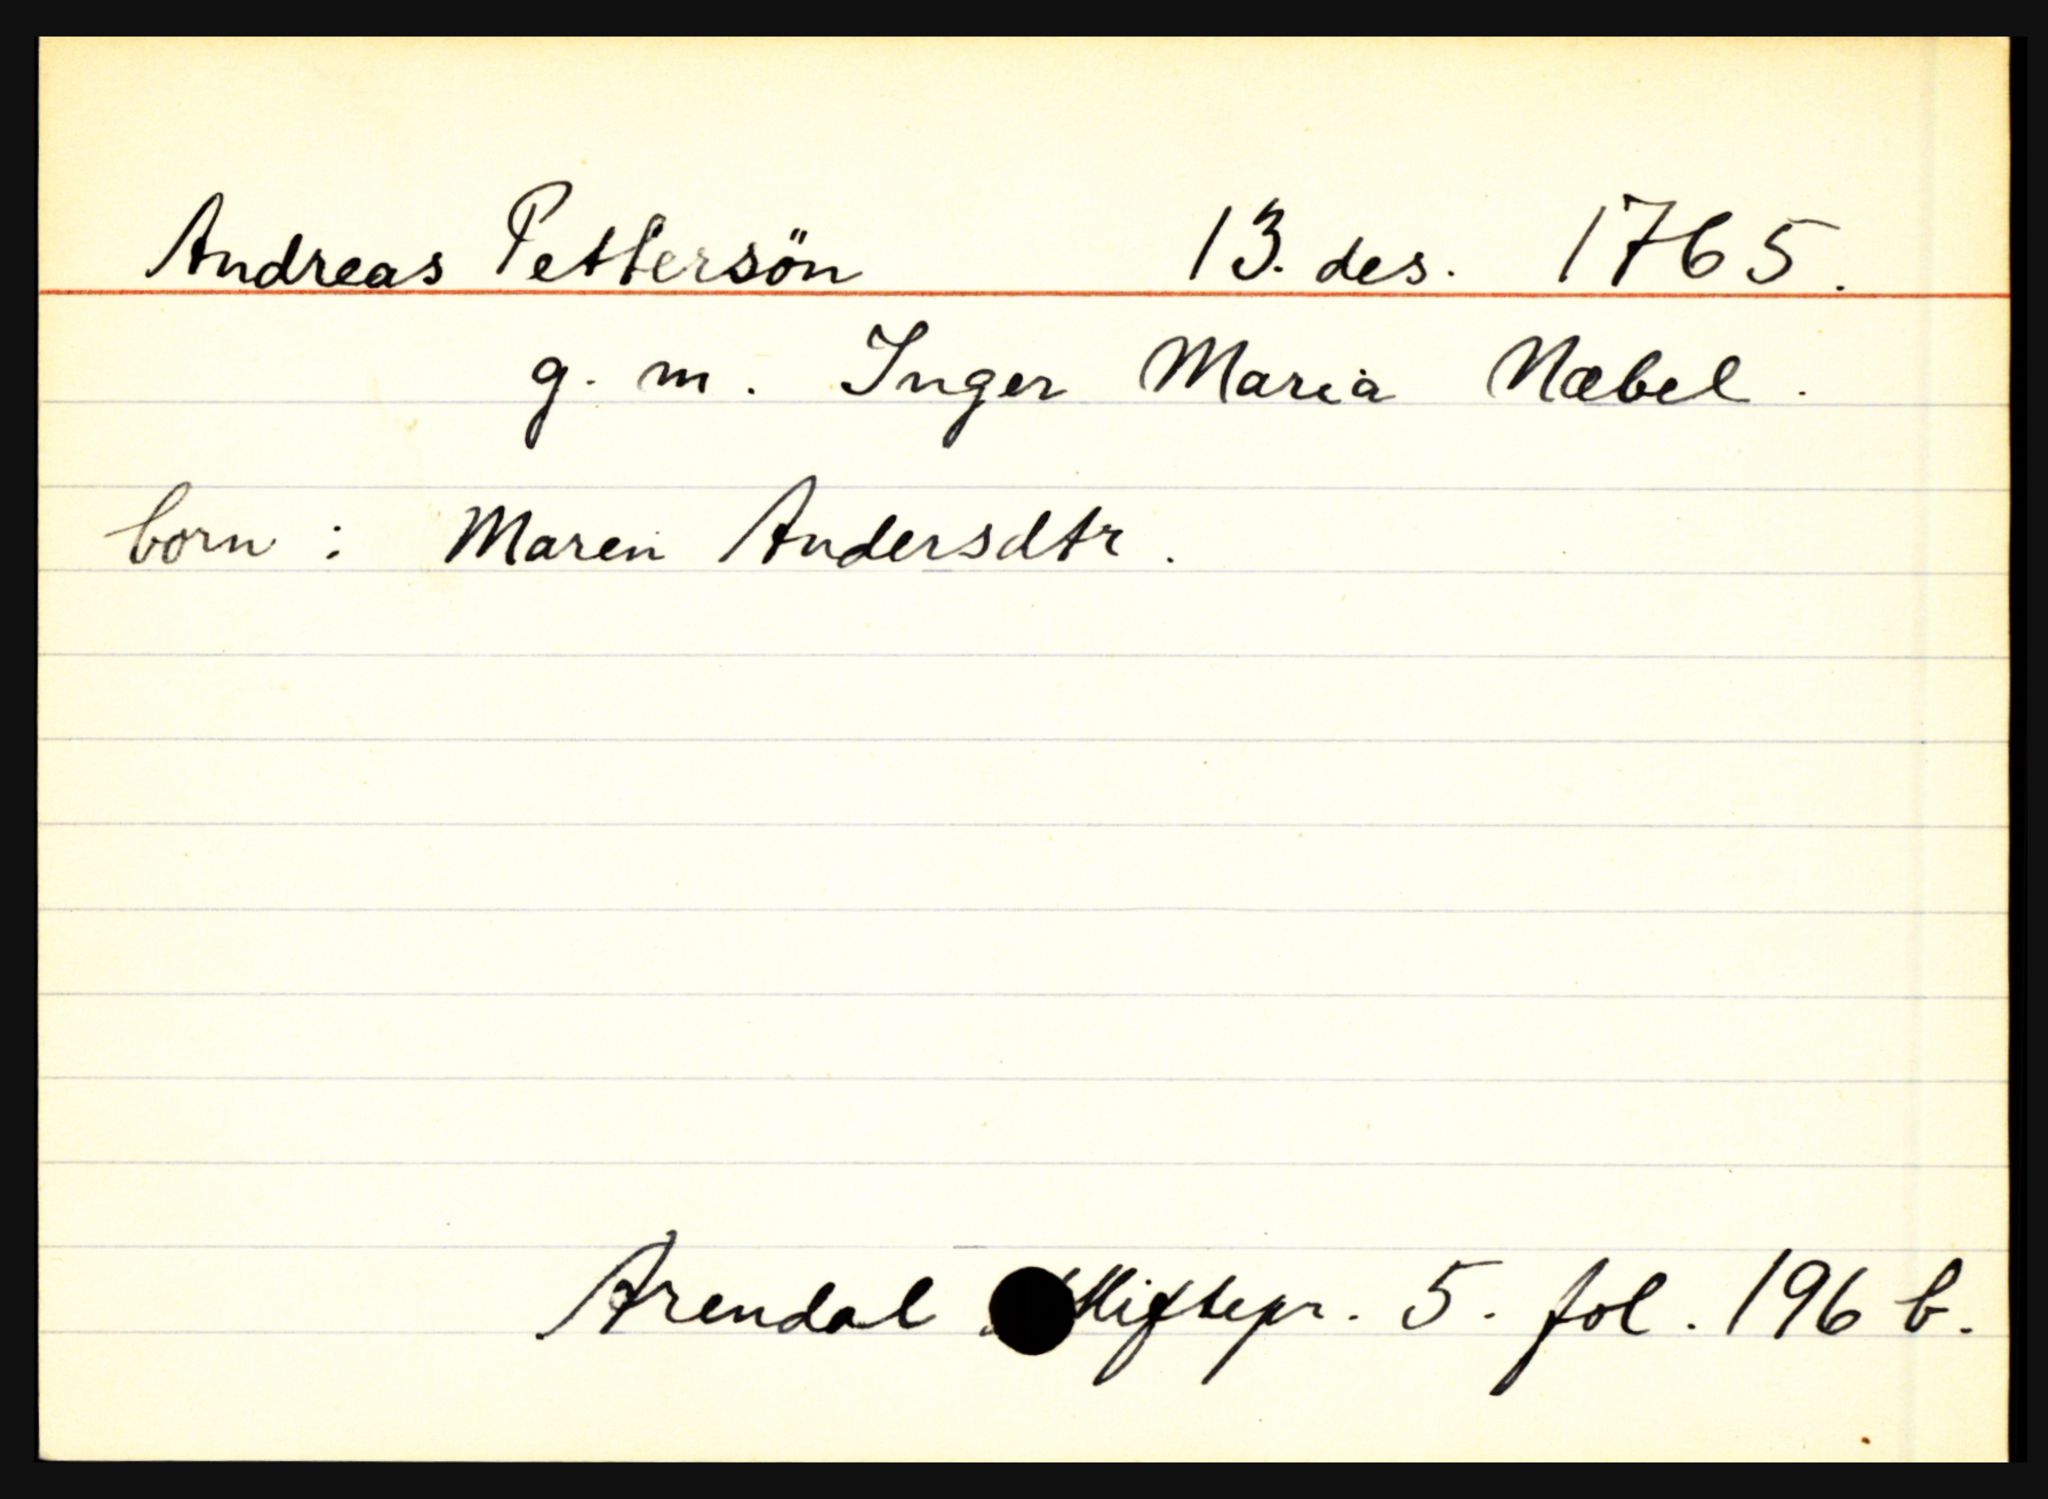 Andreas Pettersön 13. des. 1765.
g. m. Inger Maria Næbel.
born: Maren Andersdtr.
Arendal Skiftepr. 5. fol. 196 b.